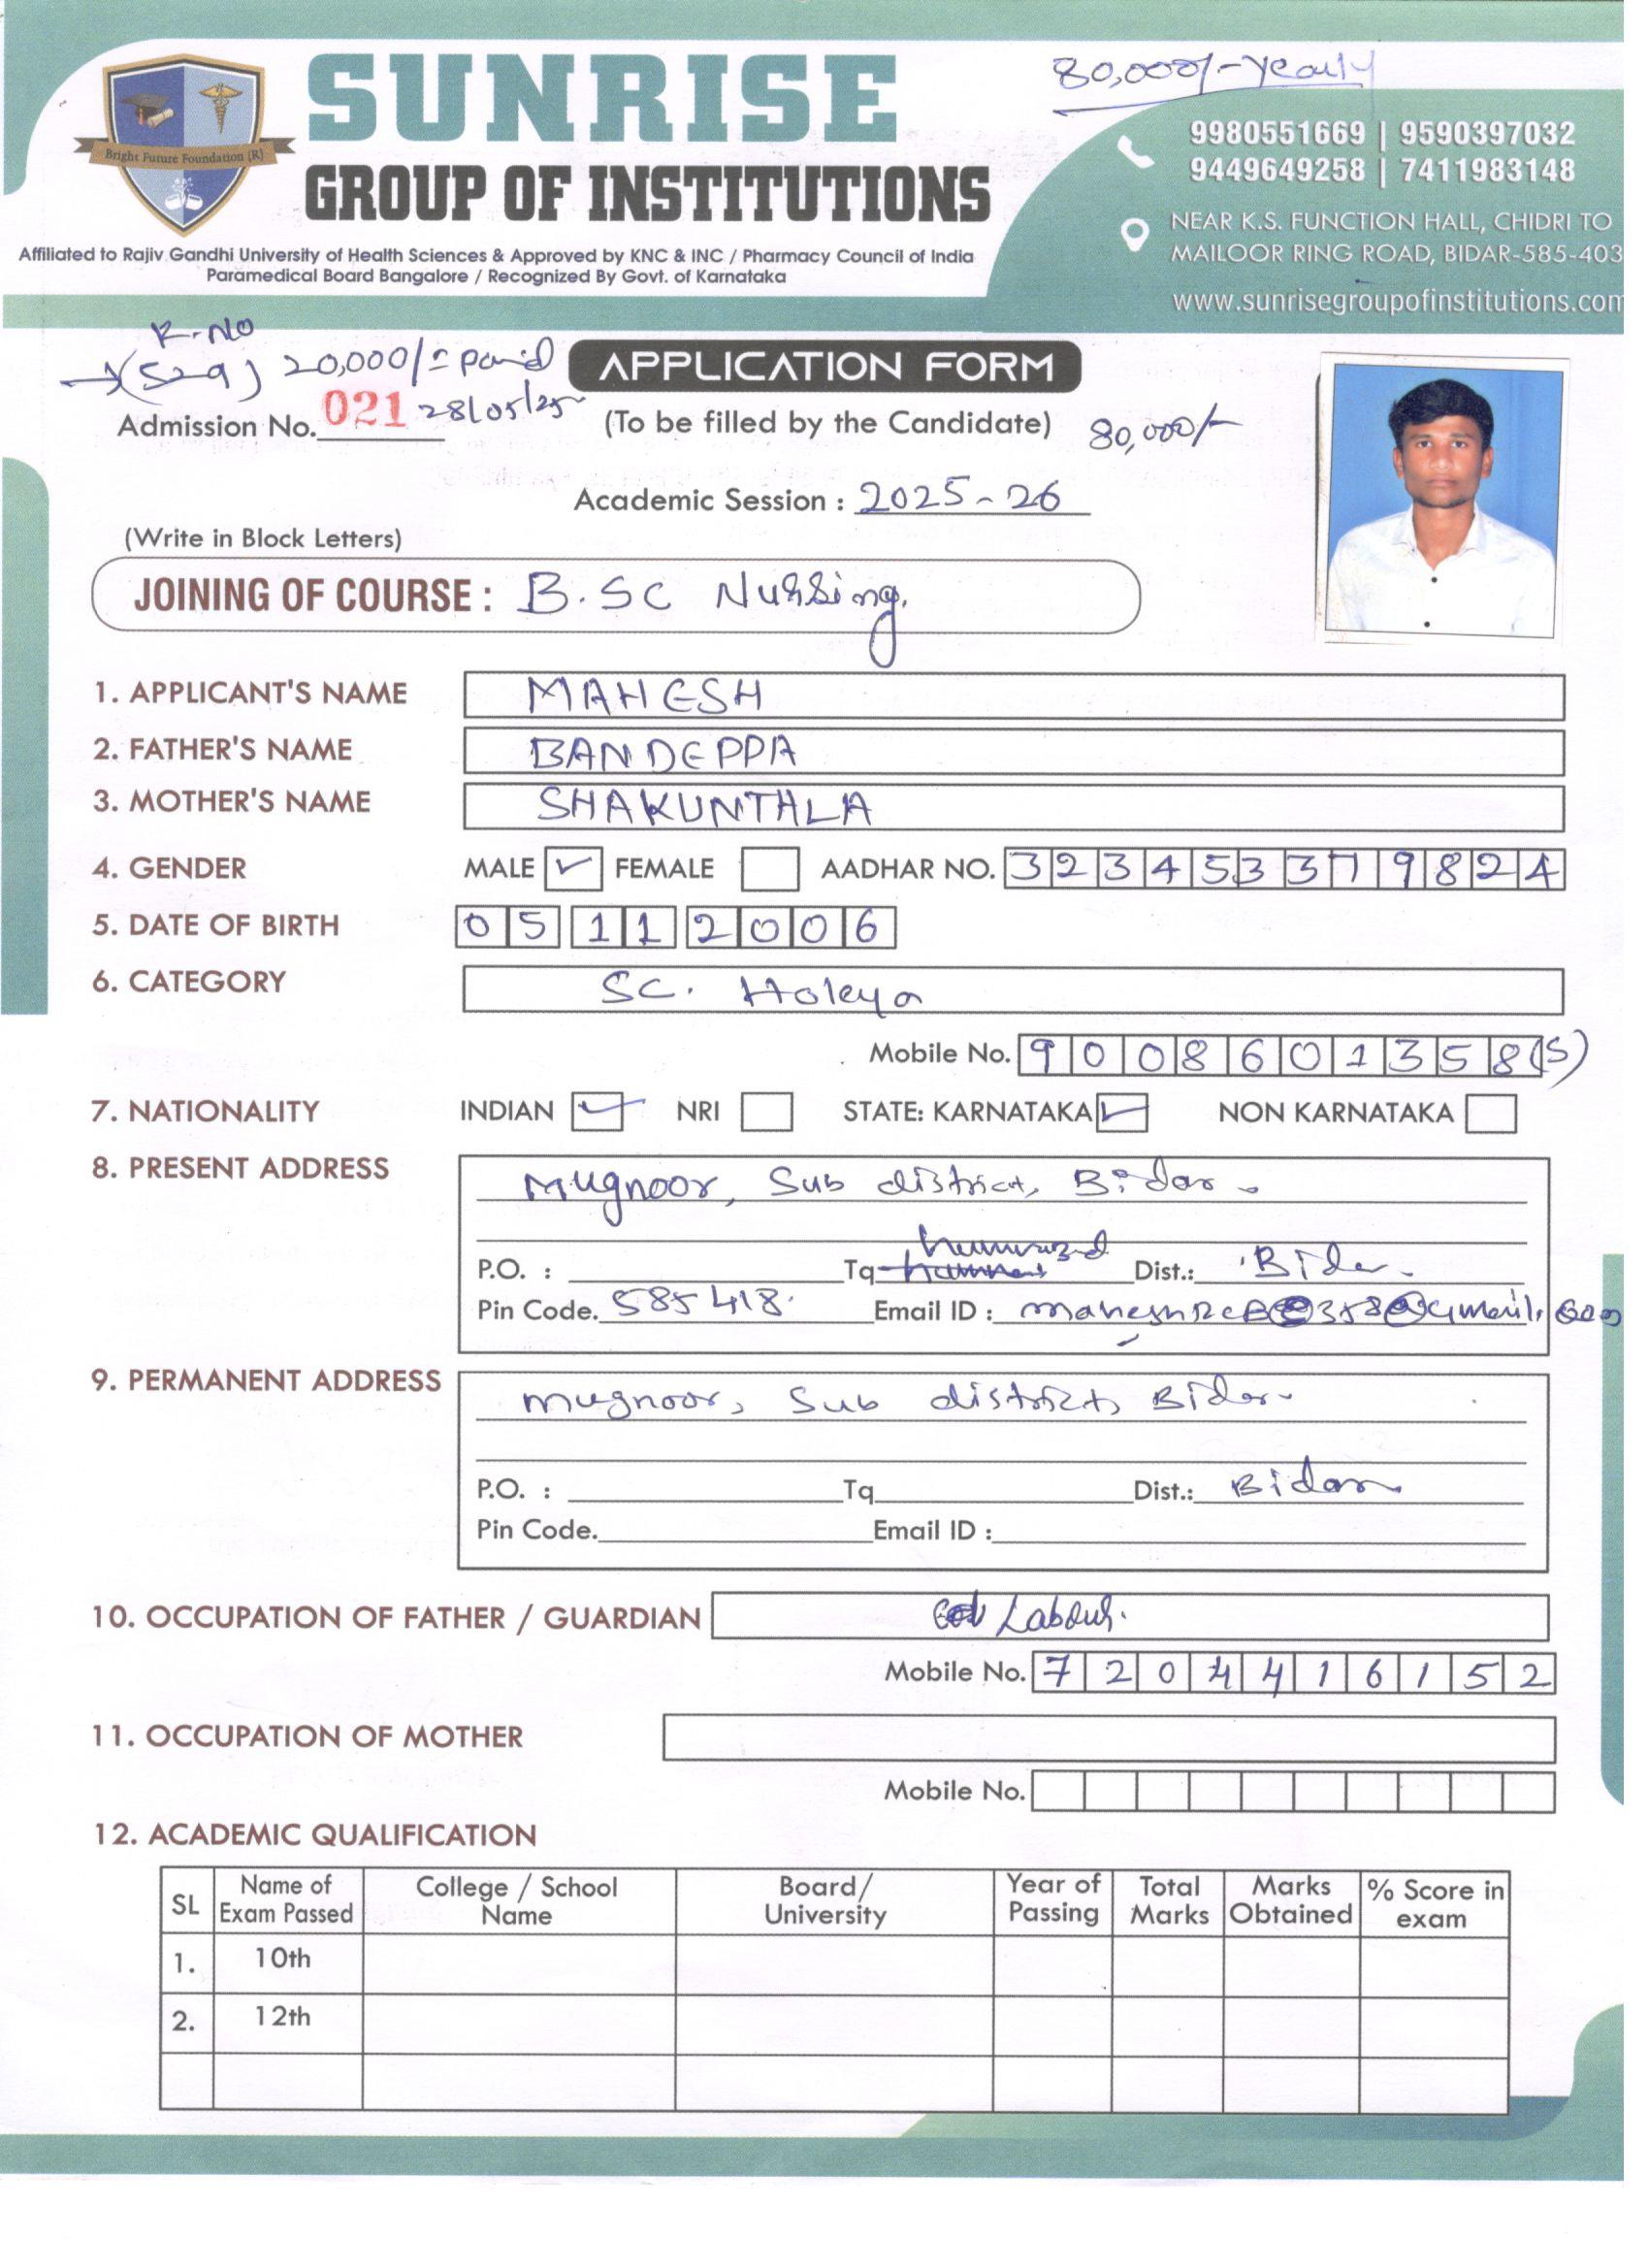 80,000/- yearly
SUNRISE
GROUP OF INSTITUTIONS
Bright Future Foundation (R)
Affiliated to Rajiv Gandhi University of Health Sciences & Approved by KNC & INC / Pharmacy Council of India
Paramedical Board Bangalore / Recognized By Govt. of Karnataka
9980551669 | 9590397032
9449649258 | 7411983148
NEAR K.S. FUNCTION HALL, CHIDRI TO
MAILOOR RING ROAD, BIDAR-585-403
www.sunrisegroupofinstitutions.com
R.NO
(529) 20,000/= paid
28/05/25
APPLICATION FORM
Admission No. 021
(To be filled by the Candidate) 80,000/-
Academic Session : 2025-26
(Write in Block Letters)
JOINING OF COURSE : B.SC Nursing.
1. APPLICANT'S NAME MAHESH
2. FATHER'S NAME BANDEPPA
3. MOTHER'S NAME SHAKUNTHLA
4. GENDER MALE ✓ FEMALE AADHAR NO. 323453379824
5. DATE OF BIRTH 05 11 2006
6. CATEGORY SC. Holeya
Mobile No. 9008601358 (S)
7. NATIONALITY INDIAN ✓ NRI STATE: KARNATAKA ✓ NON KARNATAKA
8. PRESENT ADDRESS Mugnoor, Sub district, Bidar.
P.O. : Tq Dist.: Bidar
Pin Code. 585418. Email ID :
9. PERMANENT ADDRESS mugnoor, Sub district, Bidar
P.O. : Tq Dist.: Bidar
Pin Code. Email ID :
10. OCCUPATION OF FATHER / GUARDIAN Labour.
Mobile No. 7204416152
11. OCCUPATION OF MOTHER
Mobile No.
12. ACADEMIC QUALIFICATION
SL Name of Exam Passed College / School Name Board/ University Year of Passing Total Marks Marks Obtained % Score in exam
1. 10th
2. 12th